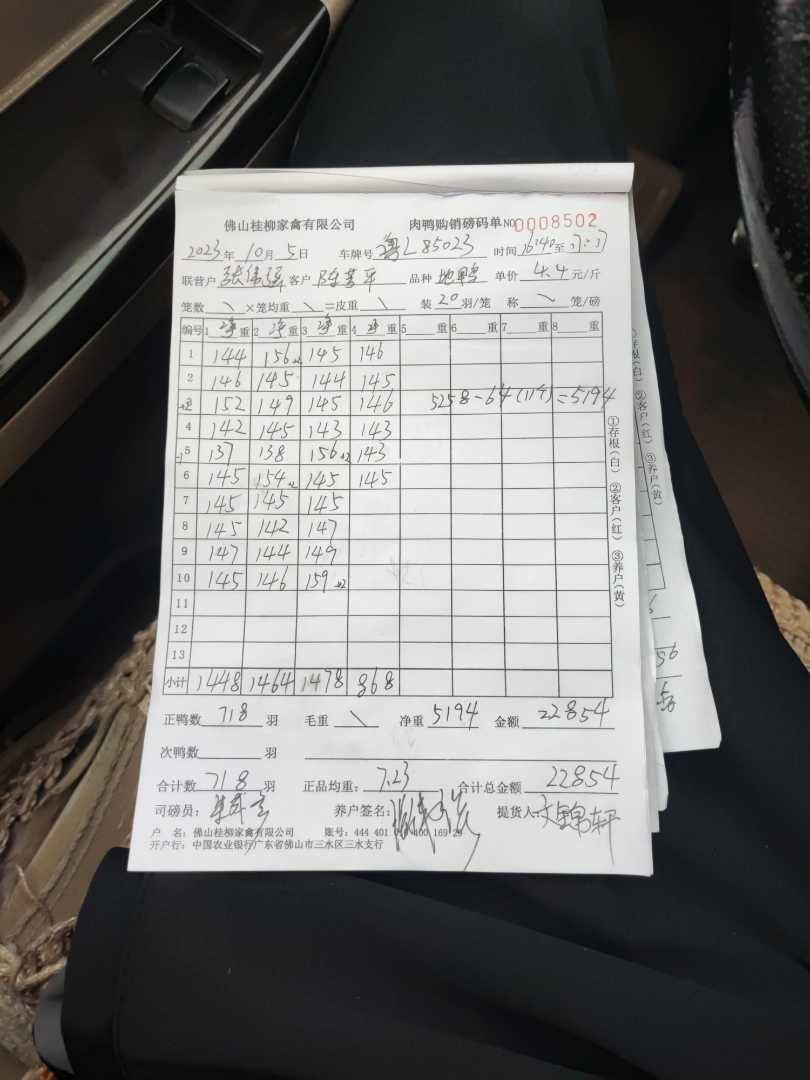 佛山桂柳家禽有限公司 肉鸭购销磅码单 NO 0008502
2023年 10月 5日 车牌号 粤L85023 时间 16:40至17:17
联营户 张伟强 客户 陈 平 品种 地鸭 单价 4.4 元/斤
笼数 \ ×笼均重 \ =皮重 \ 装 20 羽/笼 称 \ 笼/磅
编号 1 净 重 2 净 重 3 净 重 4 净 重 5 重 6 重 7 重 8 重
1 144 156+2 145 146
2 146 145 144 145
+2 3 152 149 145 146 5258-64(11个)=5194
4 142 145 143 143
-1 5 137 138 156+2 143
6 145 154+2 145 145
7 145 145 145
8 145 142 147
9 147 144 149
10 145 146 159+2
11
12
13
小计 1448 1464 1478 868
正鸭数 718 羽 毛重 \ 净重 5194 金额 22854
次鸭数 羽
合计数 718 羽 正品均重: 7.23 合计总金额 22854
司磅员: 养户签名: 提货人: 锦轩
户 名: 佛山桂柳家禽有限公司 账号: 444 401 400 169 29
开户行: 中国农业银行广东省佛山市三水区三水支行
①存根(白) ②客户(红) ③养户(黄)
存根(白) ②客户(红) ③养户(黄)
56